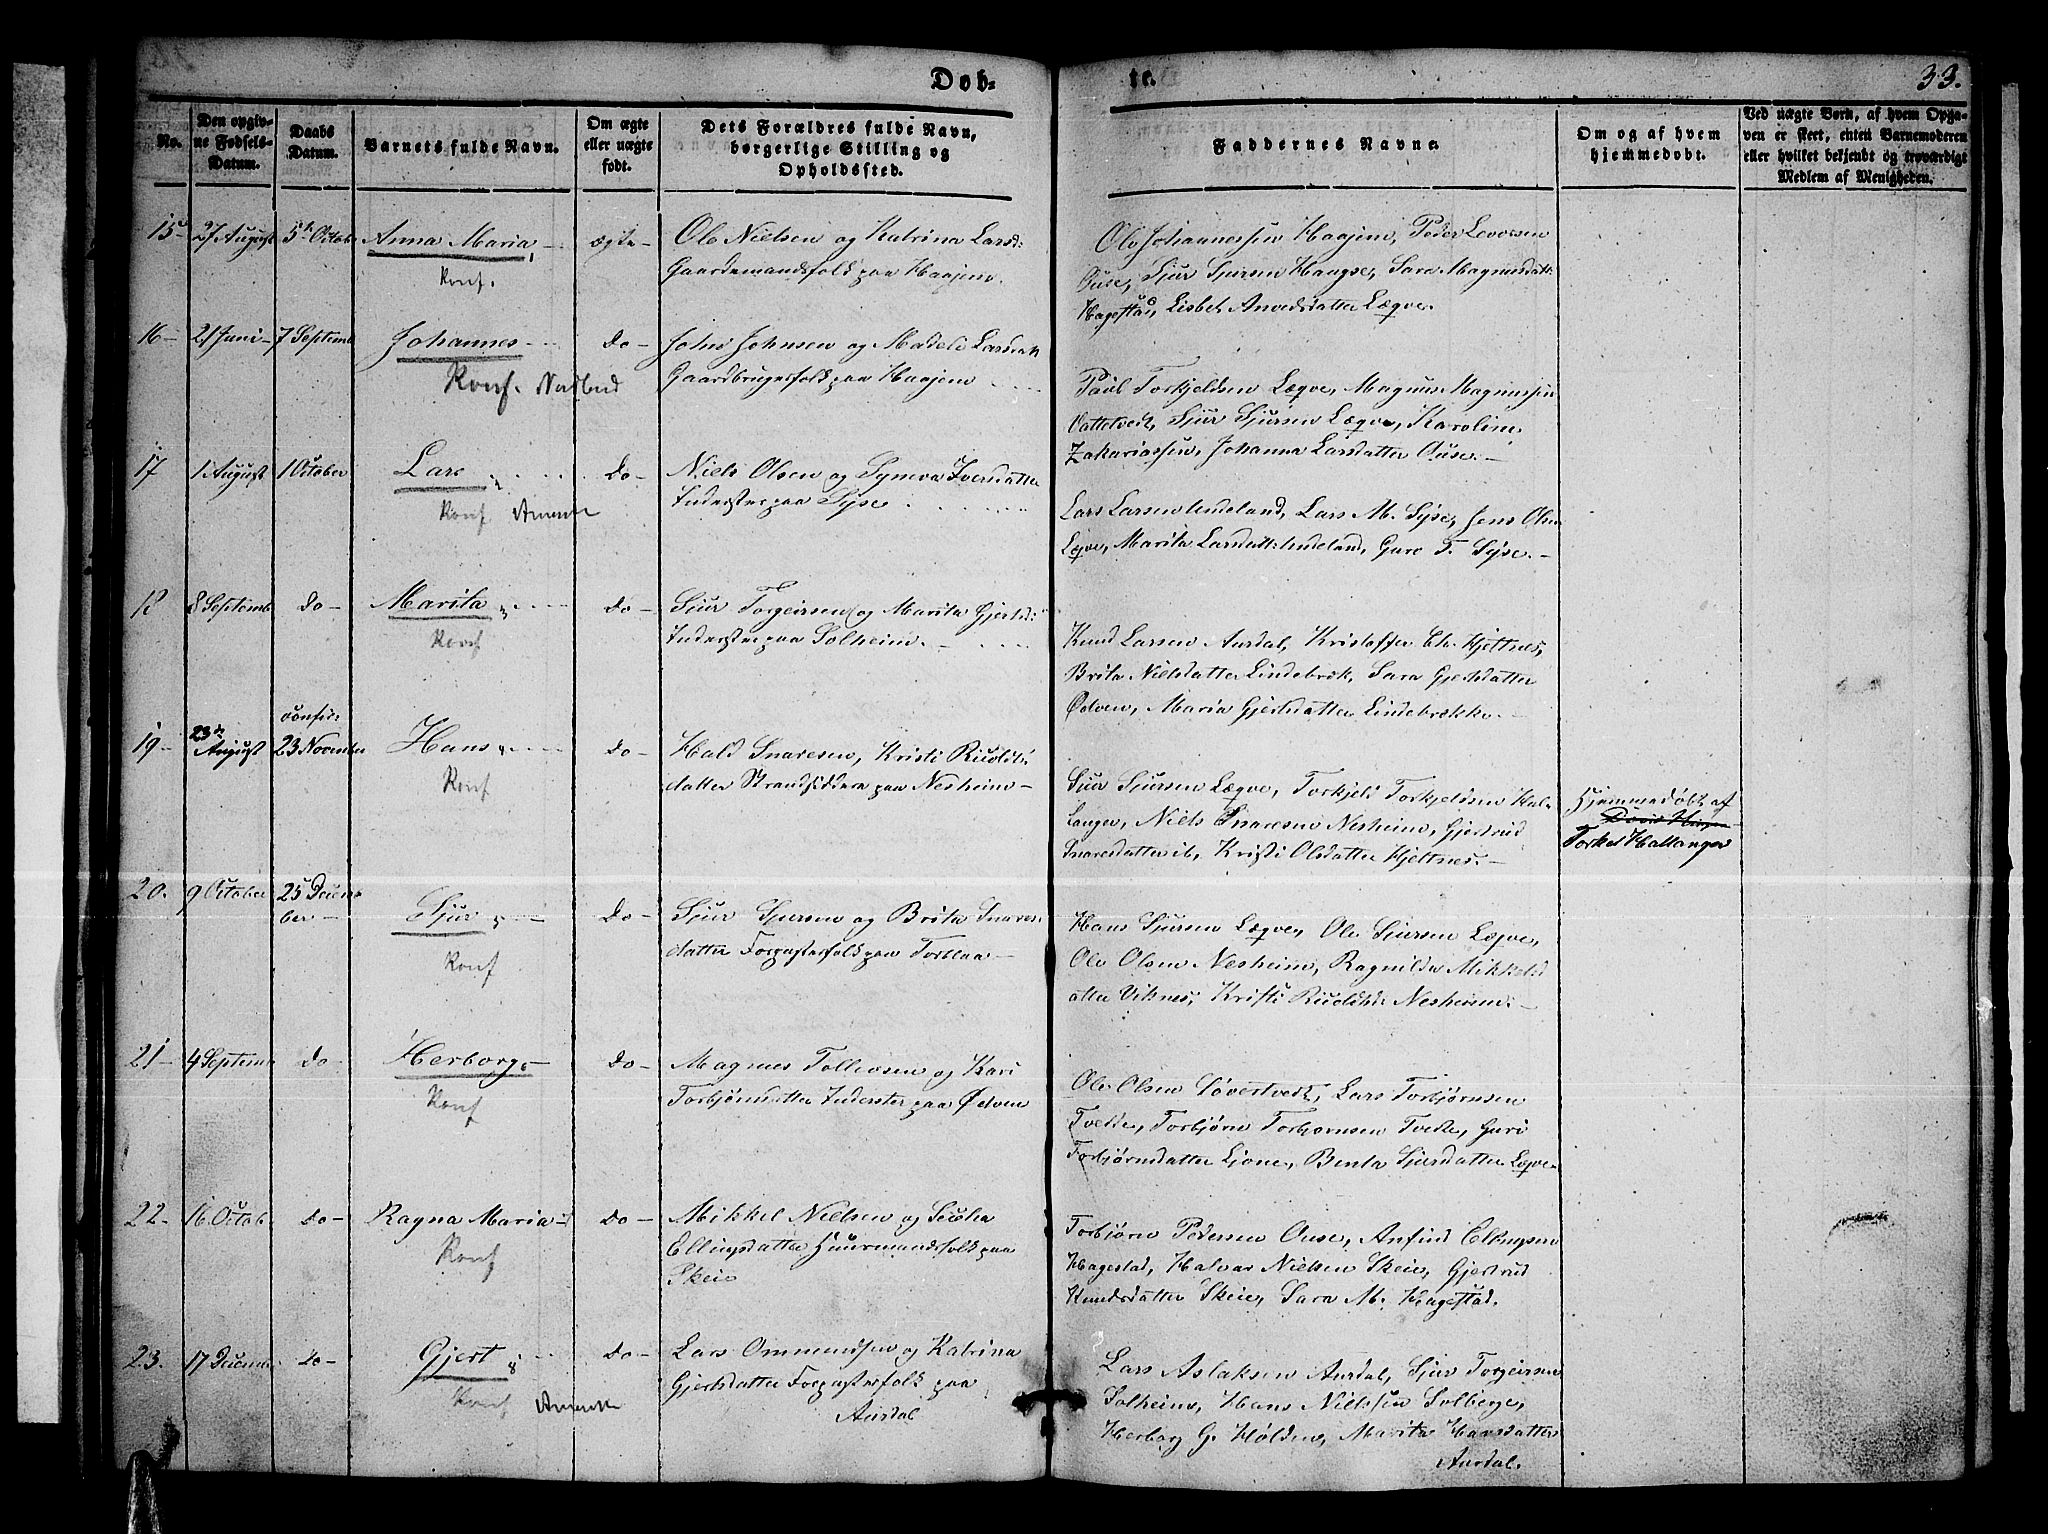 Dob-
te.
33.
No.
Den opgivne Fødsels-Datum.
Daabs Datum.
Barnets fulde Navn.
Om ægte eller uægte født.
Dets Forældres fulde Navn, borgerlige Stilling og Opholdssted.
Faddernes Navne.
Om og af hvem hjemmedøbt.
Ved uægte Børn, af hvem Opgaven er skeet, enten Barnemoderen eller hvilket bekjendt og troværdigt Medlem af Menigheden.
15 27 August 5te Octob Anna Maria ægte Ole Nielsen og Katrina Larsd:
Gaardemandsfolk paa Haajem.
Konf.
Ole Johannessen Haajem, Peder
Ouse, Sjur Sjursen Haugse, Sara Magnusdatt:
Hagestad, Lisbet Anvedsdatter Lægve.
16 21 Juni 7 Septemb Johannes Do John Johnsen og Madele Larsdatt
Gaardbrugerfolk paa Haajem
Konf.
Paul Torkjeldsen Lægve, Magnus Magnussen
Vattetvedt, Sjur Sjursen Lægve, Karoline
Zakariassen, Johanna Larsdatter Ouse.
17 1 August 1 October Lars Do Niels Olsen og Synva Iversdatter
Inderster paa Syse
Konf
Lars Larsen Lindeland, Lars M. Syse, Jens Olsen
Lægve, Marita Larsdatt: Lindeland, Guro T. Syse.
18 8 Septemb Do Marita Do Sjur Torgeirsen og Marita Gjertsd:
Inderster paa Solheim.
Konf
Knud Larsen Aurdal, Kristoffer Chr. Hjeltnes,
Brita Nielsdatter Lindebrek, Sara Gjertsdatter
Ødven, Maria Gjertsdatter Lindebrække.
19 23de August confir: 23 November Hans Do Hald Snaresen, Kristi Ricoldsdatter Strandsiddere paa Nesheim
Konf
Sjur Sjursen Lægve, Torkjeld Torkjeldsen Hallanger, Niels Snaresen Nesheim, Gjertrud
Snaresdatter ib, Kristi Olsdatter Hjeltnes.
Hjemmedøbt af
Torkel Hallanger
20. 9 October 25 December Sjur Do Sjur Sjursen og Brita Snaresdatter Forpagterfolk paa Torblaa
Konf
Hans Sjursen Lægve, Ole Sjursen Lægve,
Ole Olsen Nesheim, Ragnilda Mikkelsdatter Viknes, Kristi Ricoldsd: Nesheim.
21 4 Septemb Do Herborg Do Magnes Tollevsen og Kari
Torbjørnsdatter Inderster paa Ødven
Konf
Ole Olsen Løvestvedt, Lars Torbjørnsen
Tvedte, Torbjørn Torbjørnsen Tvedte, Guri
Torbjørnsdatter Ljone, Benta Sjursdatter Lægve
22. 16 Octob Do Ragna Maria Do Mikkel Nielsen og Secelia
Ellingsdatter Huusmandsfolk paa
Skeie
Konf
Torbjørn Pedersen Ouse, Anfind Ellingsen
Hagestad, Halvar Nielsen Skeie, Gjertrud
Knudsdatter Skeie, Sara M. Hagestad.
23. 17 December Do Gjert Do Lars Ommundsen og Katrina
Gjertsdatter Forpagterfolk paa
Aurdal
Konf
Lars Aslaksen Aurdal, Sjur Torgeirsen
Solheim, Hans Nielssen Solberge,
Herborg G. Holden, Marita Hansdatter
Aurdal.